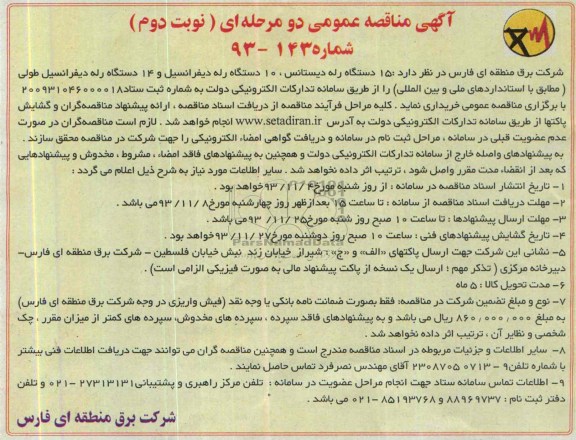 آگهی مناقصه عمومی دو مرحله‌ای ( نوبت دوم )
شماره ۱۴۳ - ۹۳
شرکت برق منطقه ای فارس در نظر دارد ۱۵۰ دستگاه رله دیستانس ، ۱۰ دستگاه رله دیفرانسیل و ۱۴ دستگاه رله دیفرانسیل طولی
( مطابق با استانداردهای ملی و بین المللی) را از طریق سامانه تدارکات الکترونیکی دولت به شماره ثبت ستاد ۲۰۰۹۳۱۰۴۶۰۰۰۰۱۸
با برگزاری مناقصه عمومی خریداری نماید . کلیه مراحل فرآیند مناقصه از دریافت اسناد مناقصه ، ارائه پیشنهاد مناقصه‌گران و گشایش
پاکتها از طریق سامانه تدارکات الکترونیکی دولت به آدرس www.setadiran.ir انجام خواهد شد . لازم است مناقصه‌گران در صورت
عدم عضویت قبلی در سامانه ، مراحل ثبت نام در سامانه و دریافت گواهی امضاء الکترونیکی را جهت شرکت در مناقصه محقق سازند .
به پیشنهادهای واصله خارج از سامانه تدارکات الکترونیکی دولت و همچنین به پیشنهادهای فاقد امضاء ، مشروط ، مخدوش و پیشنهادهایی
که بعد از انقضاء مدت مقرر واصل شود ، ترتیب اثر داده نخواهد شد . سایر اطلاعات مورد نیاز به شرح ذیل اعلام می گردد :
۱- تاریخ انتشار اسناد مناقصه در سامانه : از روز شنبه مورخ ۴ /۱۱/ ۹۳ خواهد بود .
۲- مهلت دریافت اسناد مناقصه از سامانه : تا ساعت ۱۵ بعدازظهر روز چهارشنبه مورخ ۸ /۱۱/ ۹۳ می باشد .
۳- مهلت ارسال پیشنهادها : تا ساعت ۱۰ صبح روز شنبه مورخ ۲۵ /۱۱/ ۹۳ می باشد .
۴- تاریخ گشایش پیشنهادهای فنی : ساعت ۱۰ صبح روز دوشنبه مورخ ۲۷ /۱۱/ ۹۳ خواهد بود .
ParsNamadData
۵- نشانی این شرکت جهت ارسال پاکتهای «الف» و «ج» : شیراز خیابان زند نبش خیابان فلسطین - شرکت برق منطقه ای فارس-
دبیرخانه مرکزی ( تذکر مهم : ارسال یک نسخه از پاکت پیشنهاد مالی به صورت فیزیکی الزامی است) .
۶- مدت تحویل کالا : ۵ ماه
۷- نوع و مبلغ تضمین شرکت در مناقصه: فقط بصورت ضمانت نامه بانکی یا وجه نقد (فیش واریزی در وجه شرکت برق منطقه ای فارس)
به مبلغ ۸۶۰/۰۰۰/۰۰۰ ریال می باشد و به پیشنهادهای فاقد سپرده ، سپرده های مخدوش، سپرده های کمتر از میزان مقرر ، چک
شخصی و نظایر آن ، ترتیب اثر داده نخواهد شد .
۸- سایر اطلاعات و جزئیات مربوطه در اسناد مناقصه مندرج است و همچنین مناقصه گران می توانند جهت دریافت اطلاعات فنی بیشتر
با شماره تلفن ۹- ۲۳۰۸۷۰۵ ۰۷۱۳ آقای مهندس نصرفرد تماس حاصل نمایند .
۹- اطلاعات تماس سامانه ستاد جهت انجام مراحل عضویت در سامانه : تلفن مرکز راهبری و پشتیبانی ۲۷۳۱۳۱۳۱ -۰۲۱ و تلفن
دفتر ثبت نام : ۸۸۹۶۹۷۳۷ و ۸۵۱۹۳۷۶۸ -۰۲۱ می باشد .
شرکت برق منطقه ای فارس